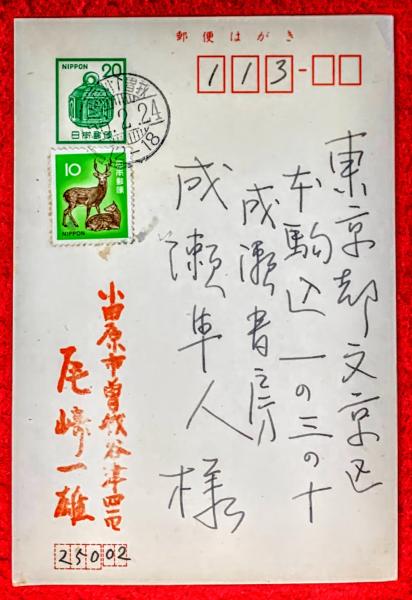 郵便はがき
113-
20
NIPPON
日本郵便
2.24
-18
10
日本郵便
NIPPON
東京都文京区
本駒込一の三の十
成瀬書房
成瀬隼人様
小田原市曽我谷津四二
尾崎一雄
25002